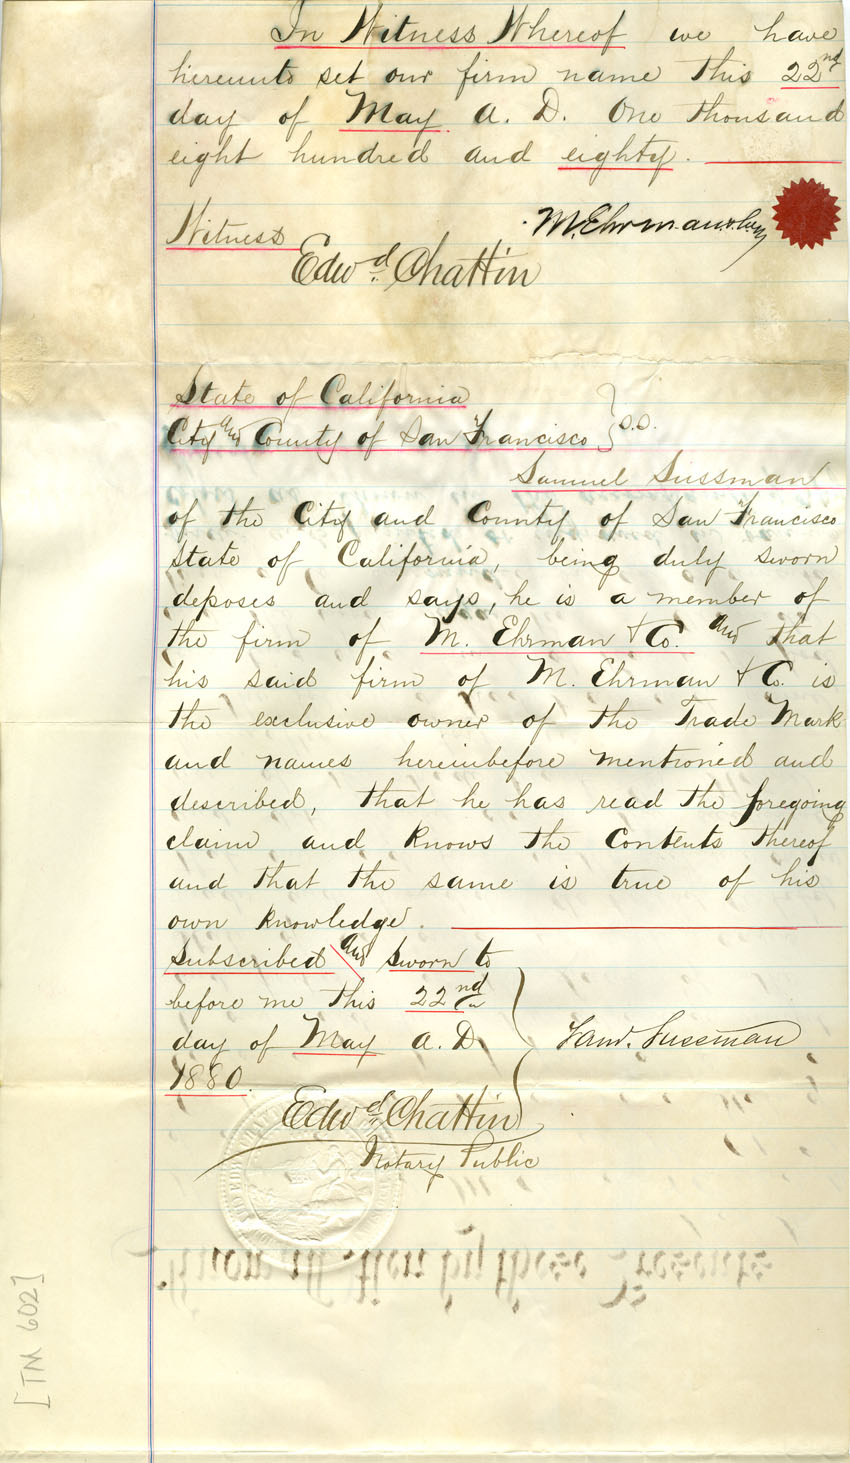 In Witness Whereof we have
hereunto set our firm name this 22nd
day of May A. D. One thousand
eight hundred and eighty.
M. Ehrman & Co
Witness
Edwd. Chattin
State of California
City and County of San Francisco } S.S.
Samuel Sussman
of the City and County of San Francisco
State of California, being duly sworn
deposes and says, he is a member of
the firm of M. Ehrman & Co. and that
his said firm of M. Ehrman & Co. is
the exclusive owner of the Trade Mark
and names hereinbefore mentioned and
described, that he has read the foregoing
claim and knows the contents thereof
and that the same is true of his
own knowledge.
Subscribed and sworn to
before me this 22nd
day of May A. D.
1880.
Saml. Sussman
Edwd. Chattin
Notary Public
[TM 602]